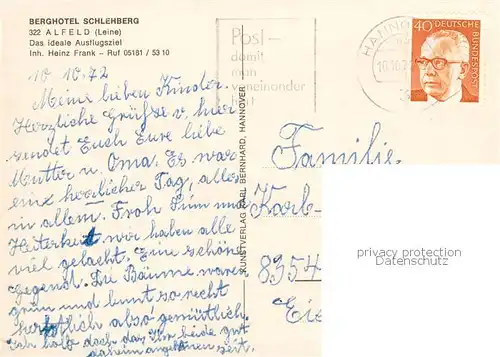 BERGHOTEL SCHLEHBERG
322 ALFELD (Leine)
Das ideale Ausflugsziel
Inh. Heinz Frank - Ruf 05181 / 53 10
10. 10. 72
Meine lieben Kinder.
Herzliche Grüße v. hier
sendet Euch Eure liebe
Mutter u. Oma. Es war
ein herrlicher Tag, alles
in allem. Froh Sinn und
Heiterkeit wir haben alle
viel gelacht. Eine schöne
Gegend. Die Bäume waren
grün und bunt so recht
herbstlich also gemütlich.
Ich hoffe doch das Ihr beide gut
daheim angekommen seit.
KUNSTVERLAG CARL BERNHARD, HANNOVER
Post –
damit
man
voneinander
hört
HANNO
10.10.72
40 DEUTSCHE
BUNDESPOST
Familie
Karb-
8354
privacy protection
Datenschutz